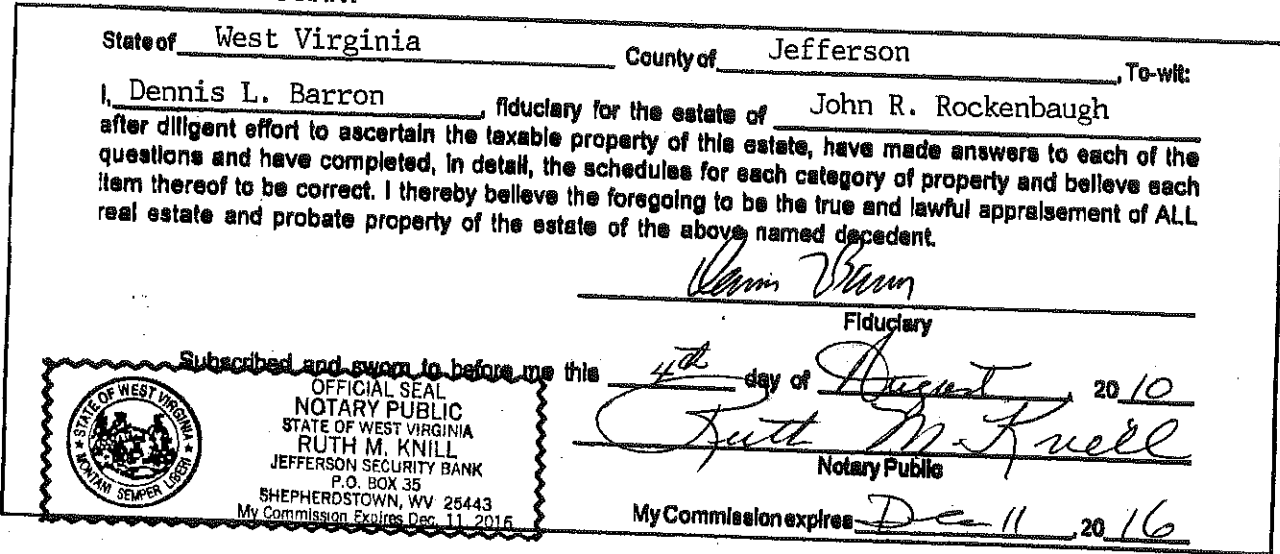 State of West Virginia County of Jefferson, To-wit:
I, Dennis L. Barron, fiduciary for the estate of John R. Rockenbaugh
after diligent effort to ascertain the taxable property of this estate, have made answers to each of the
questions and have completed, in detail, the schedules for each category of property and believe each
item thereof to be correct. I thereby believe the foregoing to be the true and lawful appraisement of ALL
real estate and probate property of the estate of the above named decedent.
Fiduciary
Subscribed and sworn to before me this 4th day of August, 20 10
STATE OF WEST VIRGINIA
MONTANI SEMPER LIBERI
OFFICIAL SEAL
NOTARY PUBLIC
STATE OF WEST VIRGINIA
RUTH M. KNILL
JEFFERSON SECURITY BANK
P.O. BOX 35
SHEPHERDSTOWN, WV 25443
My Commission Expires Dec. 11, 2016
Ruth M. Knill
Notary Public
My Commission expires Dec 11, 20 16